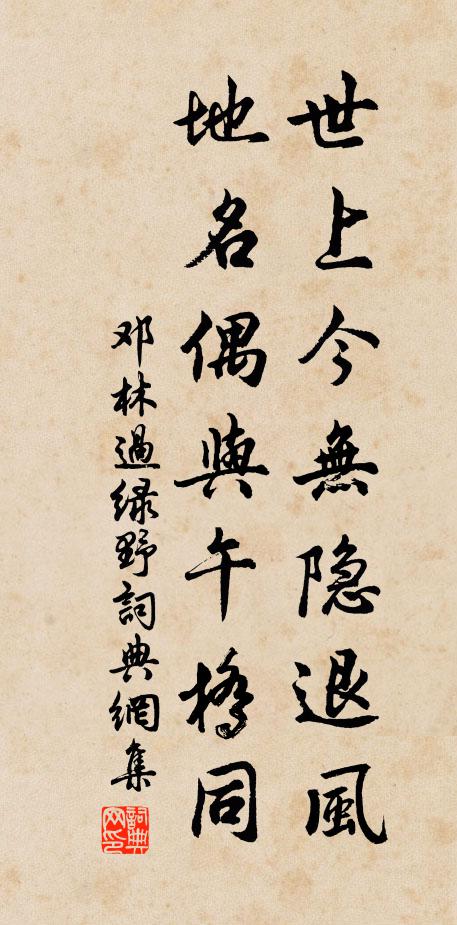 世上今無隐退風
地名偶與午橋同
邓林過緑野詞典網集
詞典网印